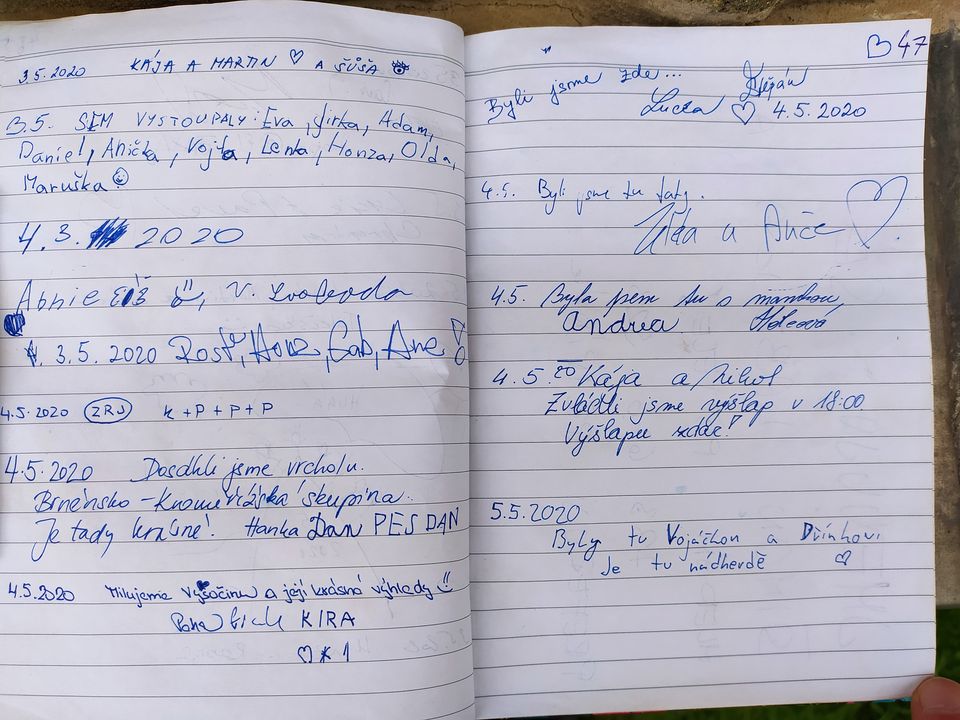 3.5.2020 KÁJA A MARTIN ♡ A ŠŮŠA
3.5. SEM VYSTOUPALY: Eva, Jirka, Adam,
Daniel, Anička, Vojta, Lenka, Honza, Olda,
Maruška ☺
4.3. 2020
V. Svoboda
3.5.2020
4.5.2020 ZRJ K+P+P+P
4.5.2020 Dosáhli jsme vrcholu.
Brněnsko-Kroměřížská skupina.
Je tady krásně! Hanka DAN PES DAN
4.5.2020 Milujeme Vysočinu a její krásné výhledy
KIRA
47
Byli jsme zde... Štěpán
Lucca ♡ 4.5.2020
4.5. Byli jsme tu taky.
a Anče ♡
4.5. Byla jsem tu s mamkou,
Andrea
4.5.20 Kája a Nikol
Zvládli jsme výšlap v 18:00
Výšlapu zdar!
5.5.2020
Byly tu Vojáčkovi a
Je tu nádherdě ♡